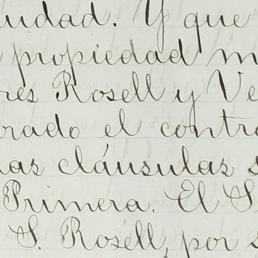 iudad. Y que
propiedad m
res Rosell y Ve
rado el contr
nas cláusulas s
Primera. El S
S. Rosell, por s